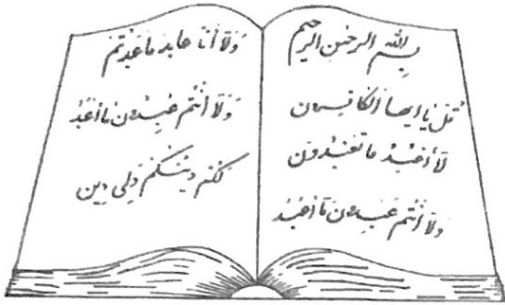 بسم الله الرحمن الرحيم
قل يا ايها الكافرون
لا أعبد ما تعبدون
ولا أنتم عبدون ما أعبد
ولا أنا عابد ما عبدتم
ولا أنتم عبدون ما أعبد
لكم دينكم ولي دين